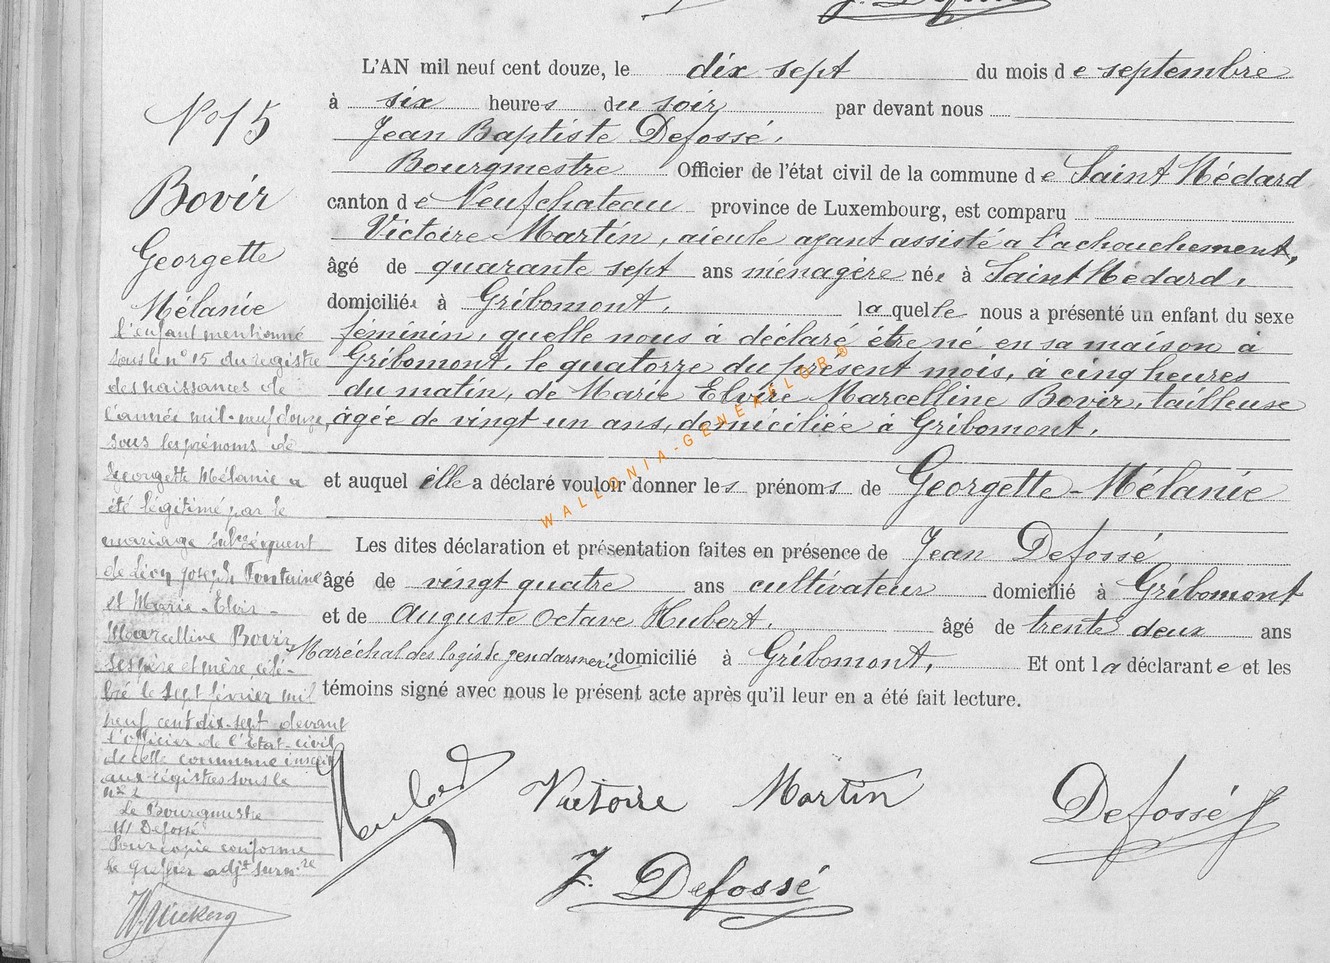 J. Defossé
N° 15
Bovir
Georgette
Mélanie
L'AN mil neuf cent douze, le dix sept du mois de septembre
à six heures du soir, par devant nous
Jean Baptiste Defossé,
Bourgmestre Officier de l'état civil de la commune de Saint Médard
canton de Neufchateau province de Luxembourg, est comparu
Victoire Martin, aieule ayant assisté a l'achouchement,
âgé de quarante sept ans ménagère née à Saint Médard,
domiciliée à Gribomont, laquelle nous a présenté un enfant du sexe
féminin, quelle nous à déclaré être né en sa maison à
Gribomont, le quatorze du présent mois, à cinq heures
du matin, de Marie Elvire Marcelline Bovir, tailleuse
âgée de vingt un ans, domiciliée à Gribomont.
et auquel elle a déclaré vouloir donner les prénoms de Georgette-Mélanie
Les dites déclaration et présentation faites en présence de Jean Defossé
âgé de vingt quatre ans cultivateur domicilié à Gribomont
et de Auguste Octave Hubert, âgé de trente deux ans
Maréchal des logis de gendarmerie domicilié à Gribomont, Et ont la déclarante et les
témoins signé avec nous le présent acte après qu'il leur en a été fait lecture.
l'enfant mentionné
sous le n° 15 du registre
des naissances de
l'année mil-neuf douze,
sous les prénoms de
Georgette Mélanie a
été légitimé par le
mariage subséquent
de Léon Joseph Fontaine
et Marie-Elvire-
Marcelline Bovir
ses père et mère, célé-
bré le sept février mil
neuf cent dix-sept devant
l'officier de l'Etat-civil
de cette commune inscrit
aux registres sous le
n° 2
Le Bourgmestre
Defossé
Pour copie conforme
le greffier adjt surnre
Victoire Martin
Defossé
J. Defossé
WALLONIA-GENEAELGB®